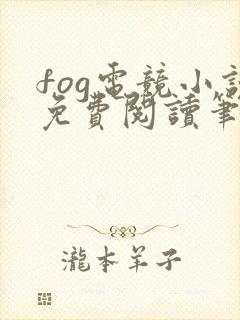 fog電競小說
免費閱讀筆
瀧本羊子